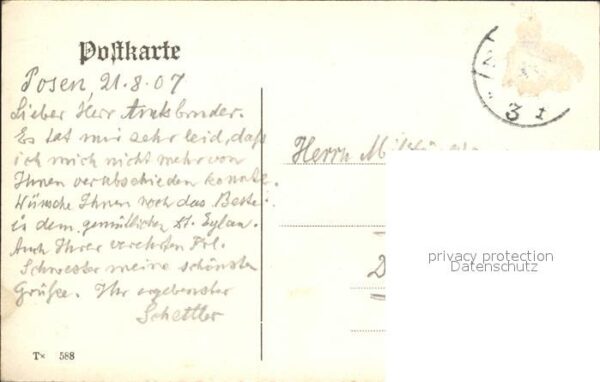 Postkarte
Posen, 21.8.07
Lieber Herr Amtsbruder.
Es tat mir sehr leid, daß
ich mich nicht mehr von
Ihnen verabschieden konnte.
Wünsche Ihnen noch das Beste
in dem gemütlichen Dt. Eylau.
Auch Ihrer verehrten Frl.
Schwester meine schönsten
Grüße. Ihr ergebenster
Schettler
Herrn
D
privacy protection
Datenschutz
3 1
T× 588